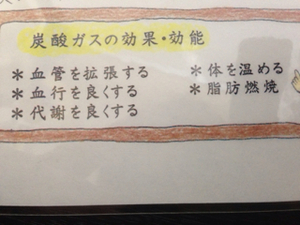 炭酸ガスの効果・効能
＊血管を拡張する
＊血行を良くする
＊代謝を良くする
＊体を温める
＊脂肪燃焼